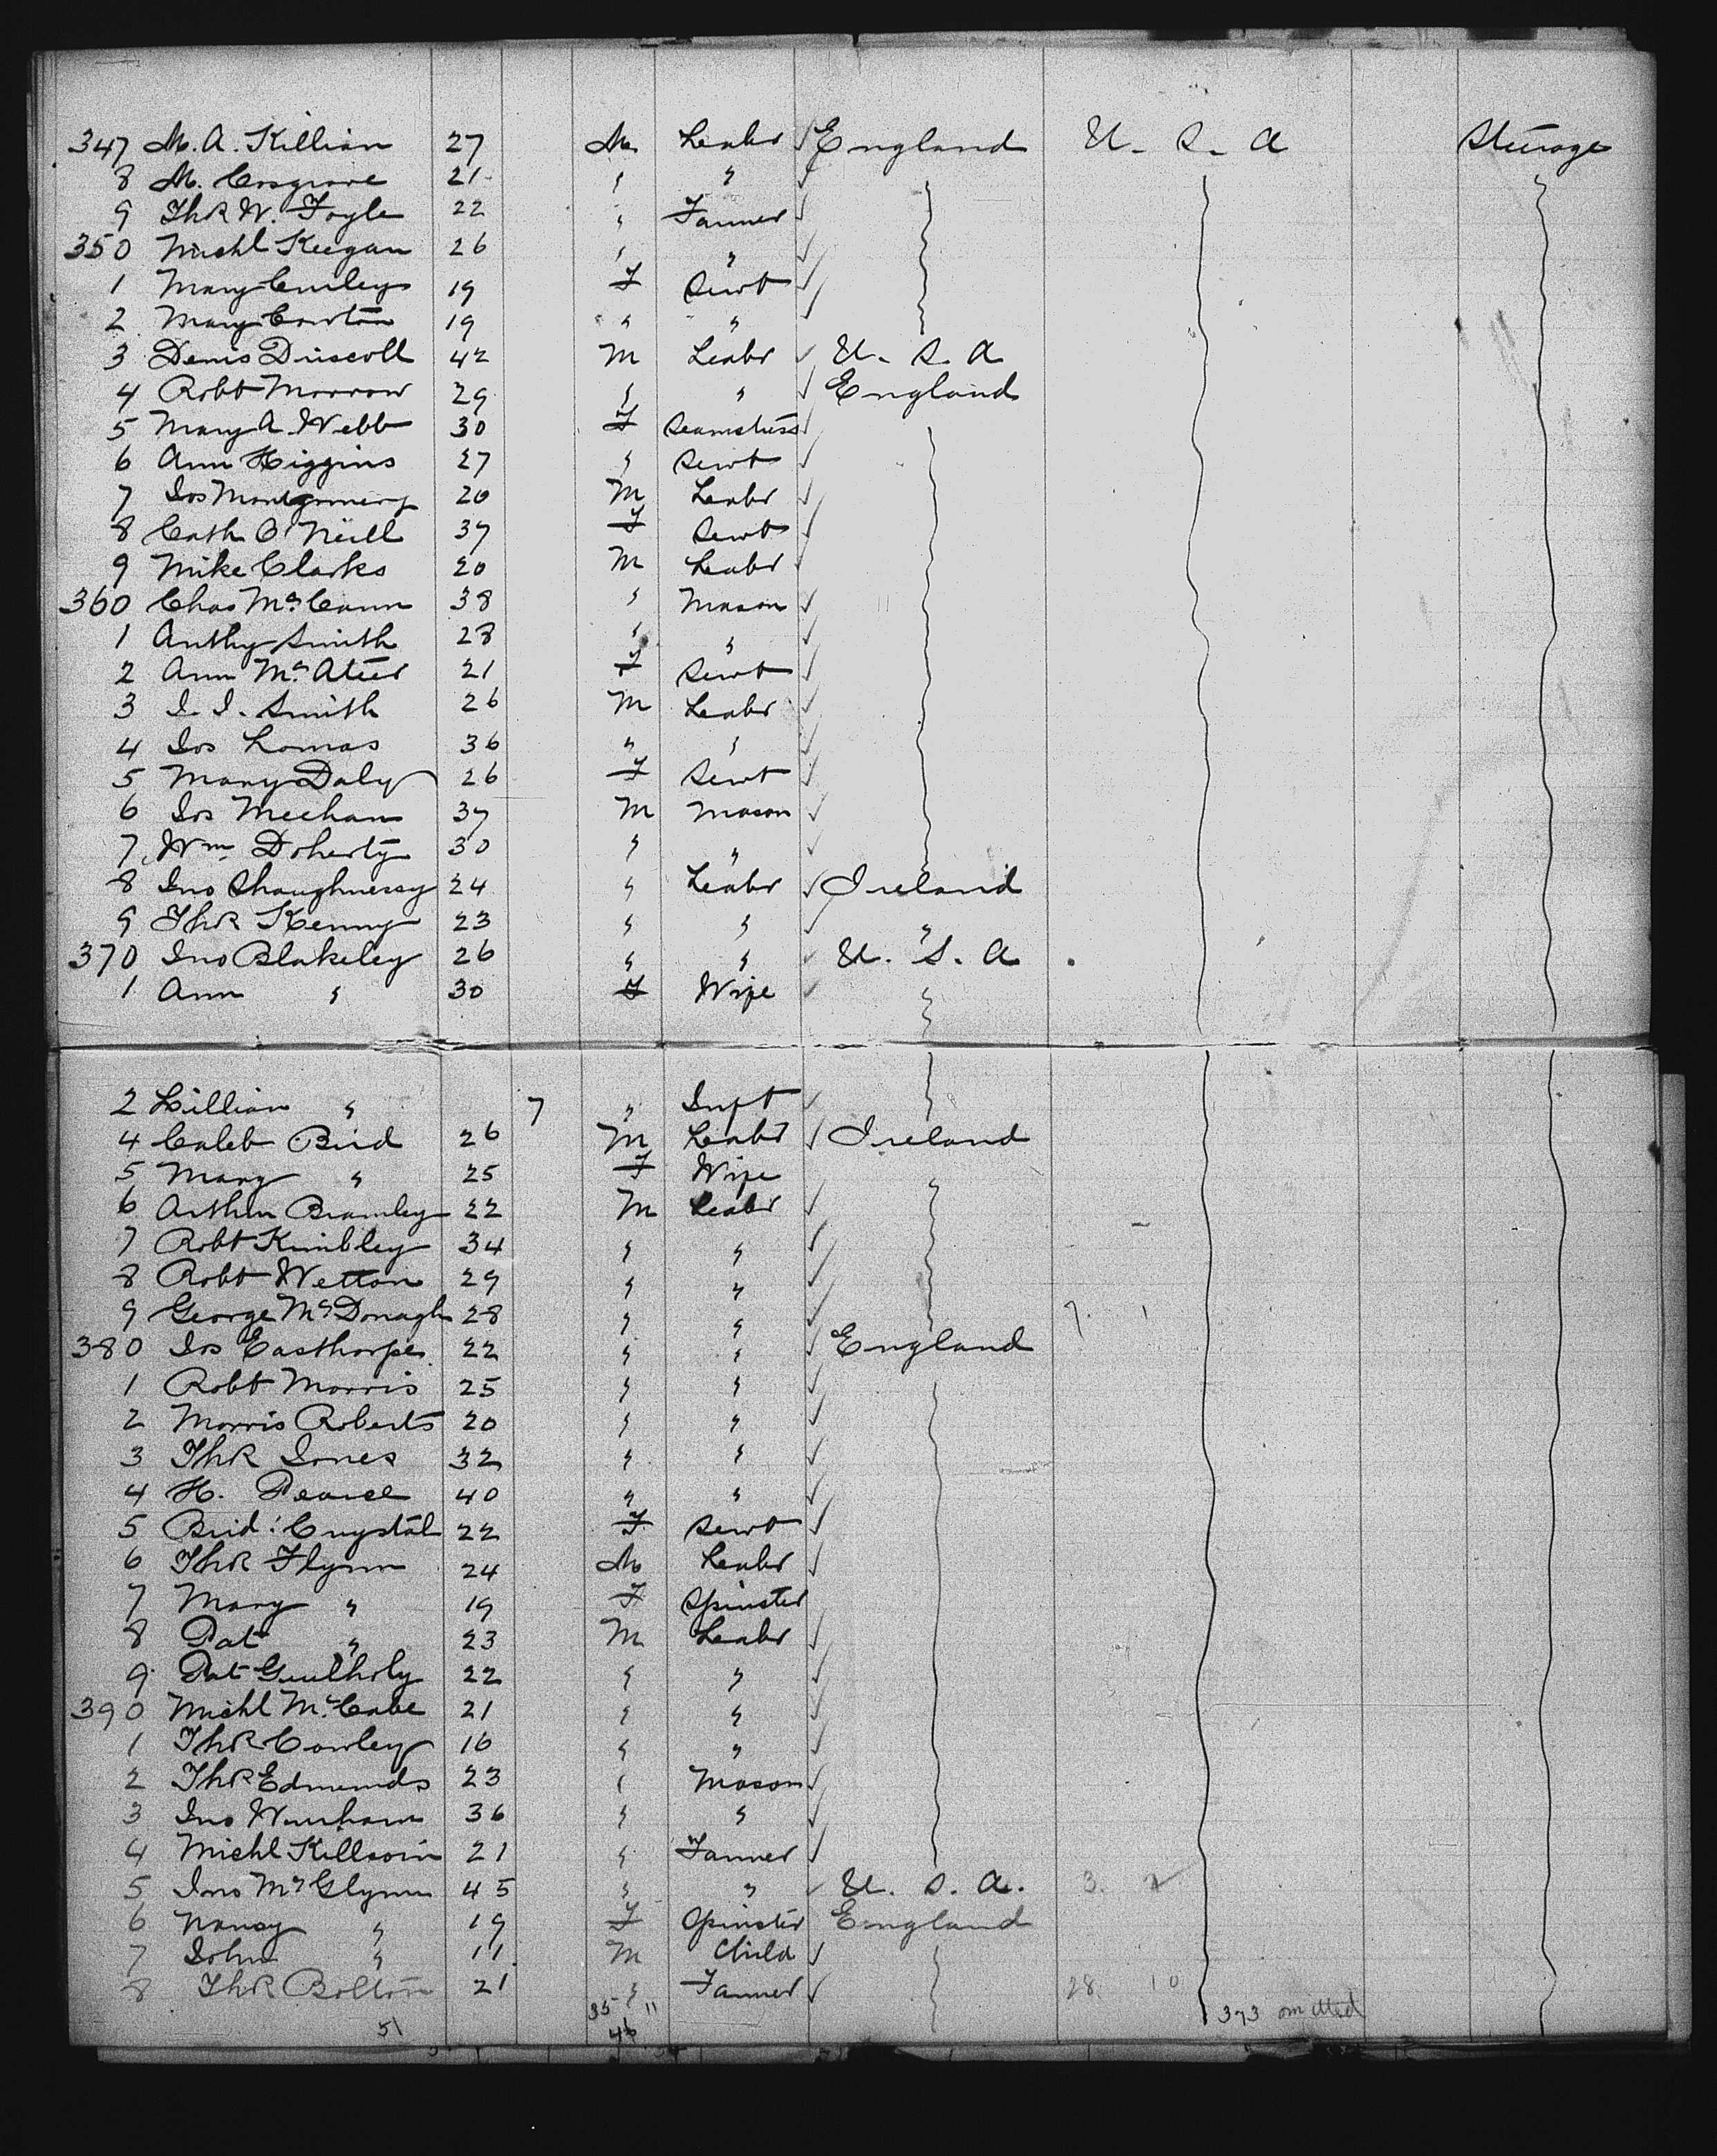 347 M. A. Killian 27 M Labr ✓ England U. S. A Steerage
8 M. Cosgrove 21 " " ✓
9 Thos W. Foyle 22 " Farmer ✓
350 Michl Keegan 26 " " ✓
1 Mary Curley 19 F Servt ✓
2 Mary 19 " " ✓
3 Denis Driscoll 42 M Labr ✓ U. S. A
4 Robt Morrow 29 " " ✓ England
5 Mary A. Webb 30 F Seamstress ✓
6 Ann Higgins 27 " Servt ✓
7 Jos Montgomery 20 M Labr ✓
8 Cath O'Neill 37 F Servt ✓
9 Mike Clarks 20 M Labr ✓
360 Chas McCann 38 " Mason ✓
1 Anthy Smith 28 " " ✓
2 Ann McAteer 21 F Servt ✓
3 J. J. Smith 26 M Labr ✓
4 Jos Lomas 36 " " ✓
5 Mary Daly 26 F Servt ✓
6 Jos Meehan 37 M Mason ✓
7 Wm Doherty 30 " " ✓
8 Jno Shaughnessy 24 " Labr ✓ Ireland
9 Thos Kenny 23 " " ✓ "
370 Jno Blakeley 26 " " ✓ U. S. A
1 Ann " 30 F Wife ✓
2 Lillian " 7 " Inft ✓
4 Caleb Bird 26 M Labr ✓ Ireland
5 Mary " 25 F Wife
6 Arthur Bramley 22 M Labr ✓
7 Robt Kimbley 34 " " ✓
8 Robt Wetton 29 " " ✓
9 George McDonagh 28 " " ✓ 7. 1
380 Jos Easthope 22 " " ✓ England
1 Robt Morris 25 " " ✓
2 Morris Roberts 20 " " ✓
3 Thos Jones 32 " " ✓
4 H. Pearce 40 " " ✓
5 Brid: Crystal 22 F Servt ✓
6 Thos Flynn 24 M Labr ✓
7 Mary " 19 F Spinster
8 Pat " 23 M Labr ✓
9 Pat 22 " " ✓
390 Michl McCabe 21 " " ✓
1 Thos Cowley 16 " " ✓
2 Thos Edmunds 23 " Mason ✓
3 Jno 36 " " ✓
4 Michl 21 " Farmer ✓
5 Jno McGlynn 45 " " ✓ U. S. A. 3. 2
6 Nancy " 19 F Spinster England
7 John " 11 M Child ✓
8 Thos Bolton 21 " Farmer ✓ 28. 10
373 omitted
51 35 11
46